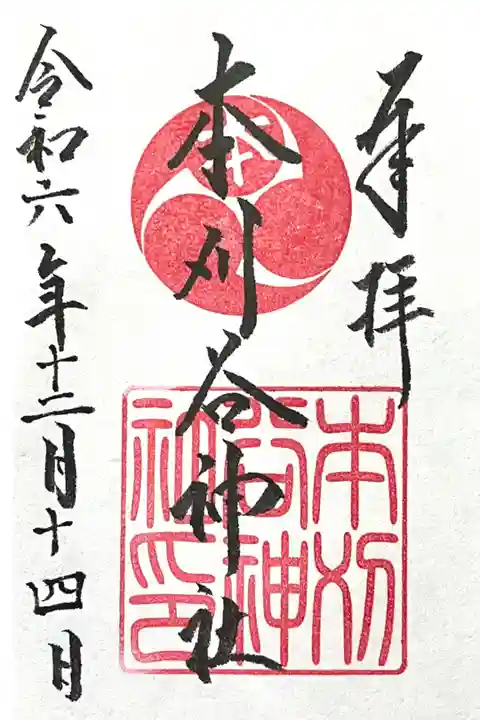 奉拝
本刈谷神社
令和六年十二月十四日
本刈
谷神
社印
本